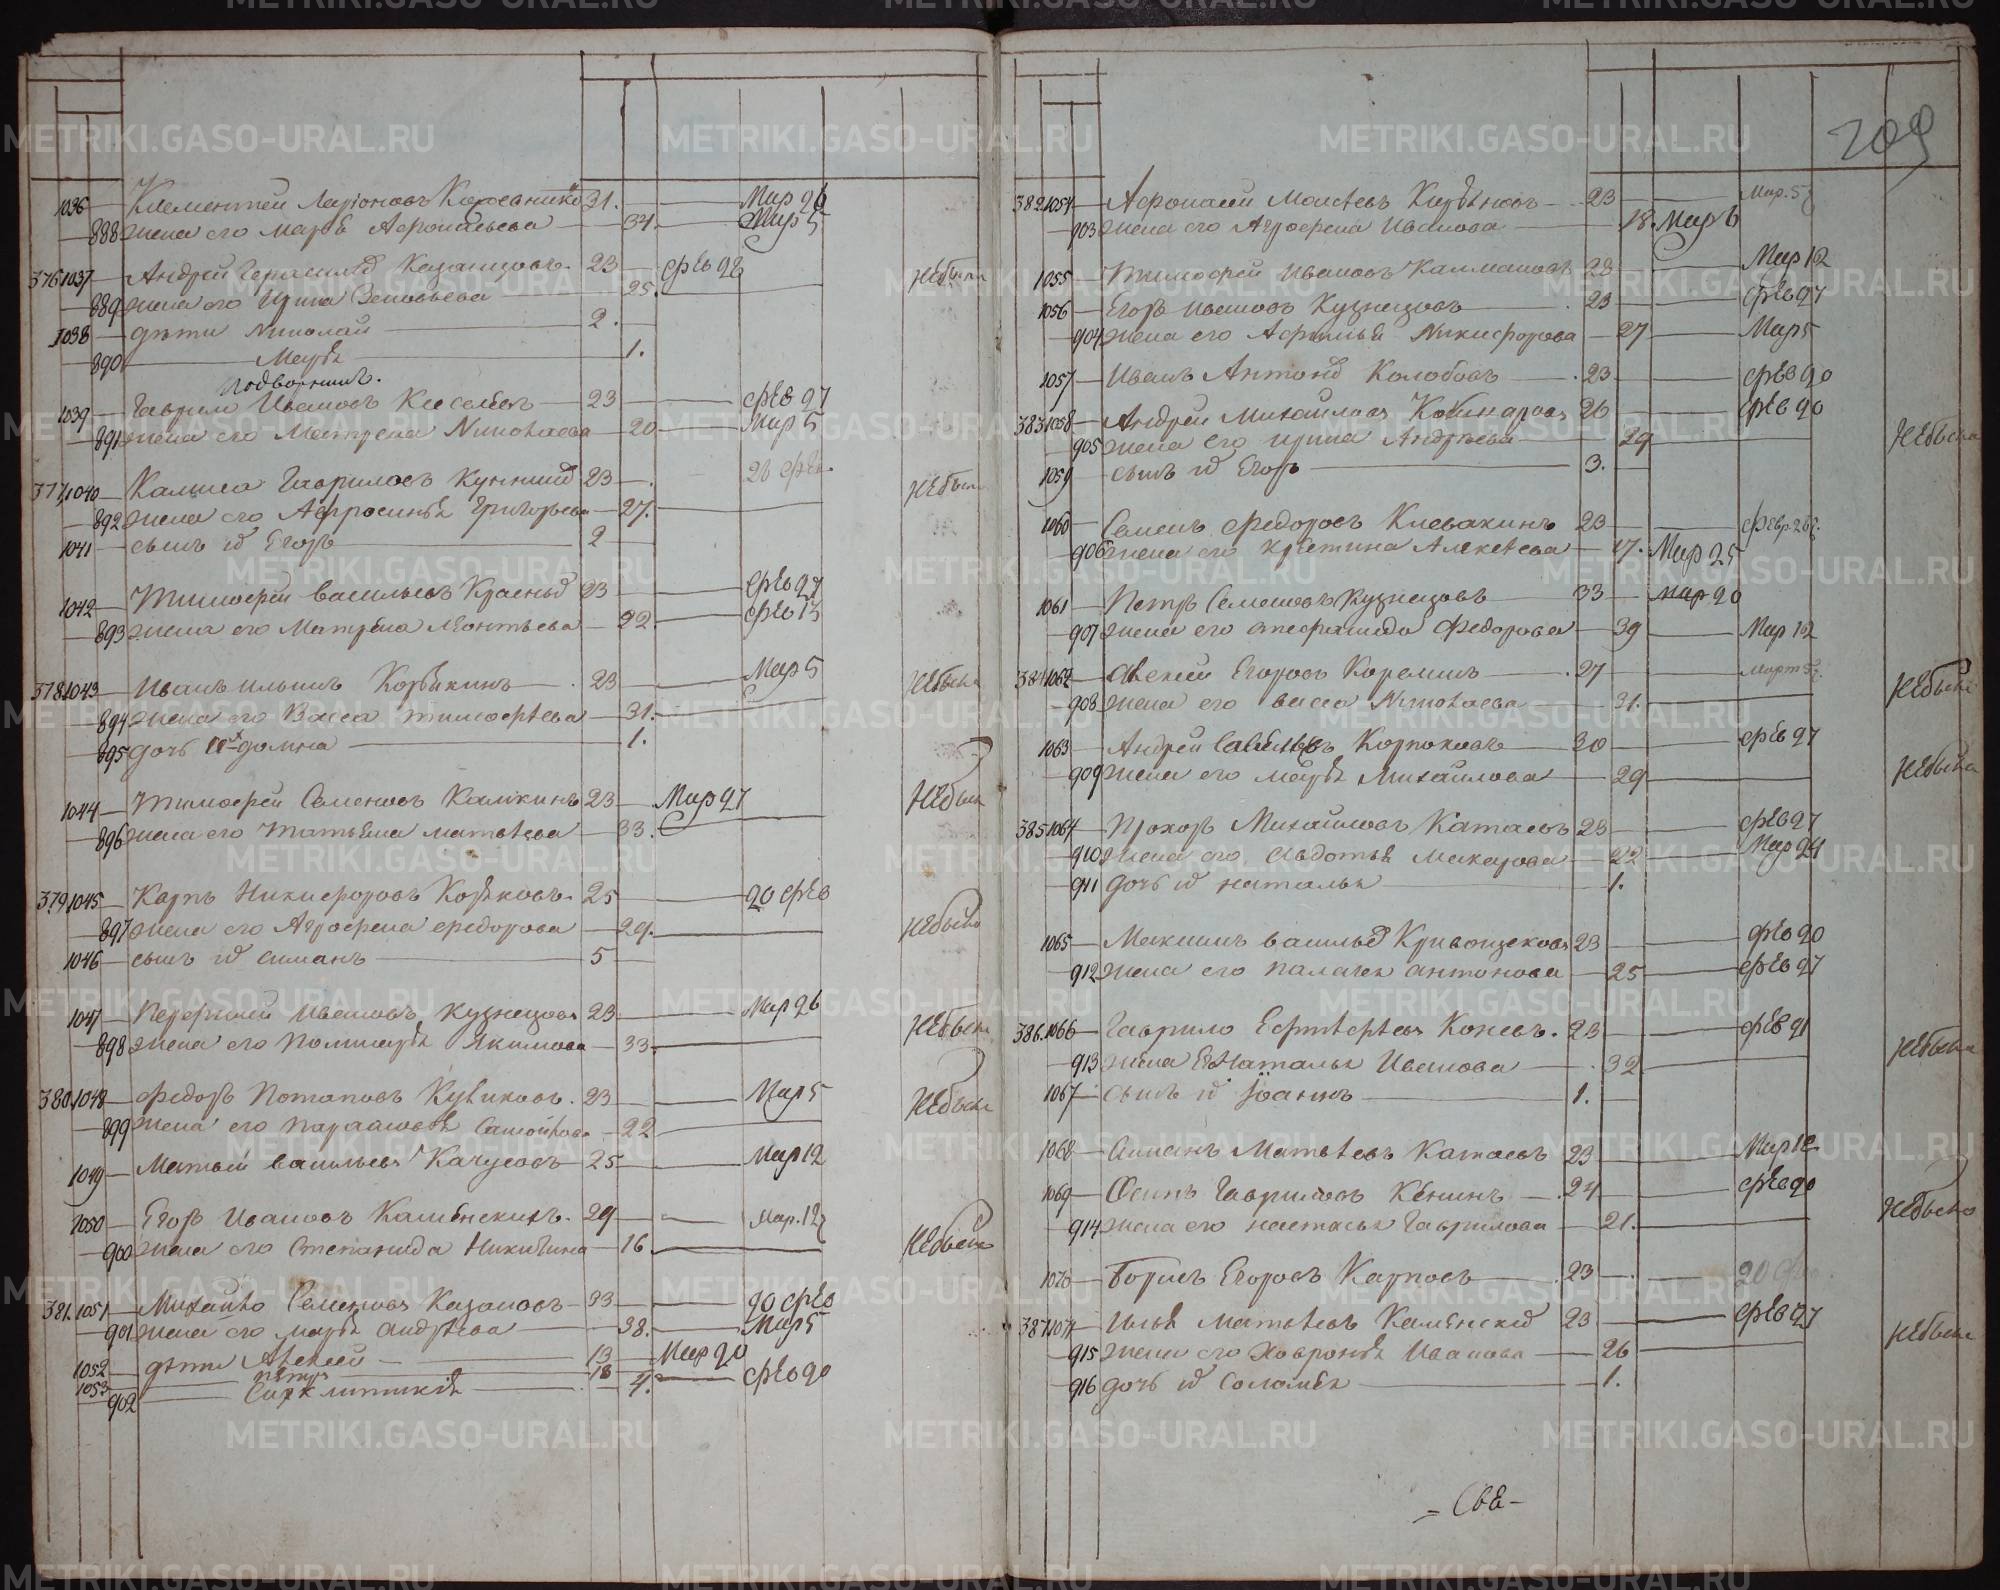 209
1036 Клементей Ларионовъ 31. Мар 26
888 жена его Марѳа Афонасьева 34. Мар 5
376. 1037 Андрей Герасимовъ Казанцовъ 23 фев 22 небыли
889 жена его Ирина Зеновьева 25.
1038 дѣти Николай 2.
890 Марѳа 1.
Подворникъ.
1039 Гаврило Ивановъ Киселевъ 23 фЕв 27
891 жена его Матрена Николаева 20 Мар 5
377. 1040 Гавриловъ 23 26 фев. небыли
892 жена его Афросинья Григорьева 27.
1041 сынъ их Егоръ 2
1042 Тимофей Васильевъ 23 фЕв 27
893 жена его Матрена Леонтьева 22. фЕв 13
378. 1043 Иванъ Ильинъ Корякинъ 23 Мар 5 небыла
894 жена его Васса Тимофеева 31.
895 дочь их Домна 1.
1044 Тимофей Семеновъ Калякинъ 23 Мар 27 небыла
896 жена его Татьяна Матвеева 33.
379. 1045 Карпъ Никифоровъ 25 20 фЕв небыла
897 жена его Агрофена Федорова 29.
1046 сынъ их Симанъ 5
1047 Перфилей Ивановъ Кузнецовъ 23 Мар 26 небыла
898 жена его Якимова 33.
380. 1048 Федоръ Потаповъ Куликовъ. 23 Мар 5 небыла
899 жена его Парасковья Самойлова 22
1049 Матвей Васильевъ Качусовъ 25 Мар 12
1050 Егоръ Ивановъ Каменскихъ. 29 Мар. 12
900 жена его Степанида Никитина 16 небыла
381. 1051 Михайло Семеновъ Казаковъ 33 20 фЕв
901 жена его Марѳа Андреева 38. Мар 5
1052 дѣти Алексей 13 Мар 20
1053 Петръ 18
902 4. фЕв 20
382. 1054 Афонасей Моисеевъ Кирьяновъ 23 Мар. 5
903 жена его Агрофена Иванова 18. Мар 6
1055 Тимофей Ивановъ Калмаковъ 28 Мар 12
1056 Егоръ Ивановъ Кузнецовъ 23 фЕв 27
904 жена его Афимья Никифорова 27 Мар 5
1057 Иванъ Антоновъ Колобовъ 23 фЕв 20
383. 1058 Андрей Михайловъ 26 фЕв 20 небыла
905 жена его Ирина Андреева 29
1059 сынъ их Егоръ 3.
1060 Семенъ Федоровъ Клевакинъ 23 Февр. 26
906 жена его Крѣстина Алексеева 17. Мар 25
1061 Петръ Семеновъ Кузнецовъ 33 мар 20
907 жена его Степанида Федорова 39 Мар 12
384. 1062 Алексей Егоровъ Корелинъ 27 Март 5 небыла
908 жена его Васса Николаева 31.
1063 Андрей Савельевъ 30 фЕв 27
909 жена его Марѳа Михайлова 29 небыла
385. 1064 Прохоръ Михайловъ Катаевъ 23 фЕв 27
910 жена его Авдотья Макарова 22 Мар 24
911 дочь их Наталья 1.
1065 Максимъ Васильевъ Кривощековъ 23 фЕв 20
912 жена его Палагея Антонова 25 фЕв 27
386. 1066 Гаврило Ефтефеевъ Коневъ. 23 фЕв 21
913 жена Ег Наталья Иванова 32 небыла
1067 сынъ их Іоаннъ 1.
1068 Симанъ Матвеевъ Катаевъ 23 Мар 12
1069 Осипъ Гавриловъ 24 фЕв 20
914 жена его Настасья Гаврилова 21. небыла
1070 Борисъ Егоровъ Карповъ 23 20 фев.
387. 1071 Илья Матвеевъ Каменской 23 фЕв 27
915 жена его Хавронья Иванова 26 небыла
916 дочь их Соломея 1.